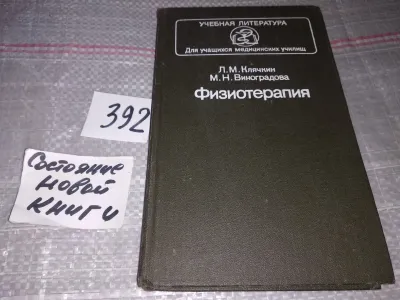 УЧЕБНАЯ ЛИТЕРАТУРА
Для учащихся медицинских училищ
Л.М.Клячкин
М.Н.Виноградова
Физиотерапия
392
Состояние
новой
книги